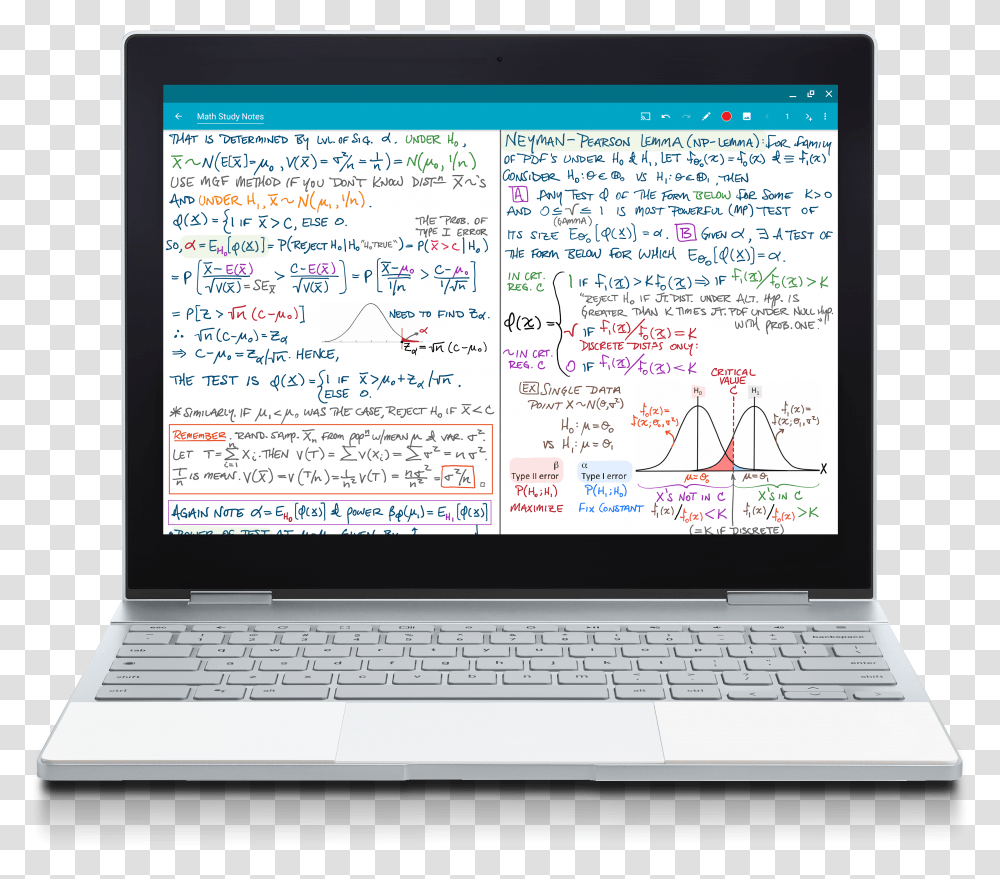 Math Study Notes
1
THAT IS DETERMINED BY LVL. OF SIG. α. UNDER H₀,
X̄ ~ N(E[X̄]=μ₀, V(X̄) = σ²/n = 1/n) = N(μ₀, 1/n)
USE MGF METHOD IF YOU DON'T KNOW DISTⁿ X̄~'S
AND UNDER H₁, X̄ ~ N(μ₁, 1/n).
φ(X) = {1 IF X̄ > C, ELSE 0.
THE PROB. OF
TYPE I ERROR
SO, α = E_H₀[φ(X)] = P(REJECT H₀|H₀ "H₀ TRUE") = P(X̄ > C | H₀)
= P[X̄-E(X̄)/√V(X̄) = SE_X̄ > C-E(X̄)/√V(X̄)] = P[X̄-μ₀/1/n > C-μ₀/1/√n]
= P[Z > √n (C-μ₀)]
NEED TO FIND Zα.
α
∴ √n (C-μ₀) = Zα
Zα = √n (C-μ₀)
⇒ C-μ₀ = Zα/√n. HENCE,
THE TEST IS φ(X) = {1 IF X̄ > μ₀ + Zα/√n.
ELSE 0.
* SIMILARLY, IF μ₁ < μ₀ WAS THE CASE, REJECT H₀ IF X̄ < C
REMEMBER. RAND. SAMP. X̄ₙ FROM POPⁿ W/MEAN μ & VAR. σ².
LET T = Σⁿᵢ₌₁ Xᵢ. THEN V(T) = ΣV(Xᵢ) = Σσ² = nσ².
T/n IS MEAN. V(X̄) = V(T/n) = 1/n² V(T) = nσ²/n² = σ²/n
AGAIN NOTE α = E_H₀[φ(X)] & POWER βφ(μ₁) = E_H₁[φ(X)]
NEYMAN-PEARSON LEMMA (NP-LEMMA): FOR FAMILY
OF PDF'S UNDER H₀ & H₁, LET f_θ₀(x) = f₀(x) & ≡ f₁(x)
CONSIDER H₀: θ ∈ Θ₀ VS H₁: θ ∈ Θ₁, THEN
A ANY TEST φ OF THE FORM BELOW FOR SOME K>0
AND 0 ≤ γ ≤ 1 IS MOST POWERFUL (MP) TEST OF
(GAMMA)
ITS SIZE E_θ₀[φ(X)] = α. B GIVEN α, ∃ A TEST OF
THE FORM BELOW FOR WHICH E_θ₀[φ(X)] = α.
IN CRT.
REG. C
1 IF f₁(x) > K f₀(x) ⇒ IF f₁(x)/f₀(x) > K
"REJECT H₀ IF JT. DIST. UNDER ALT. HYP. IS
GREATER THAN K TIMES JT. PDF UNDER NULL HYP.
WITH PROB. ONE."
φ(x) =
γ IF f₁(x)/f₀(x) = K
DISCRETE DISTⁿS ONLY:
~IN CRT.
REG. C
0 IF f₁(x)/f₀(x) < K
EX SINGLE DATA
POINT X~N(θ,σ²)
H₀: μ = θ₀
VS H₁: μ = θ₁
CRITICAL
VALUE
C
H₀
H₁
f₀(x) =
f(x; θ₀, σ²)
f₁(x) =
f(x; θ₁, σ²)
X
μ = θ₀
μ = θ₁
β
Type II error
α
Type I error
P(H₀; H₁)
P(H₁; H₀)
MAXIMIZE
FIX CONSTANT
X'S NOT IN C
X'S IN C
f₁(x)/f₀(x) < K
f₁(x)/f₀(x) > K
(= K IF DISCRETE)
esc
1 2 3 4 5 6 7 8 9 0
backspace
tab q w e r t y u i o p
a s d f g h j k l
enter
shift z x c v b n m
shift
ctrl
alt
alt
ctrl